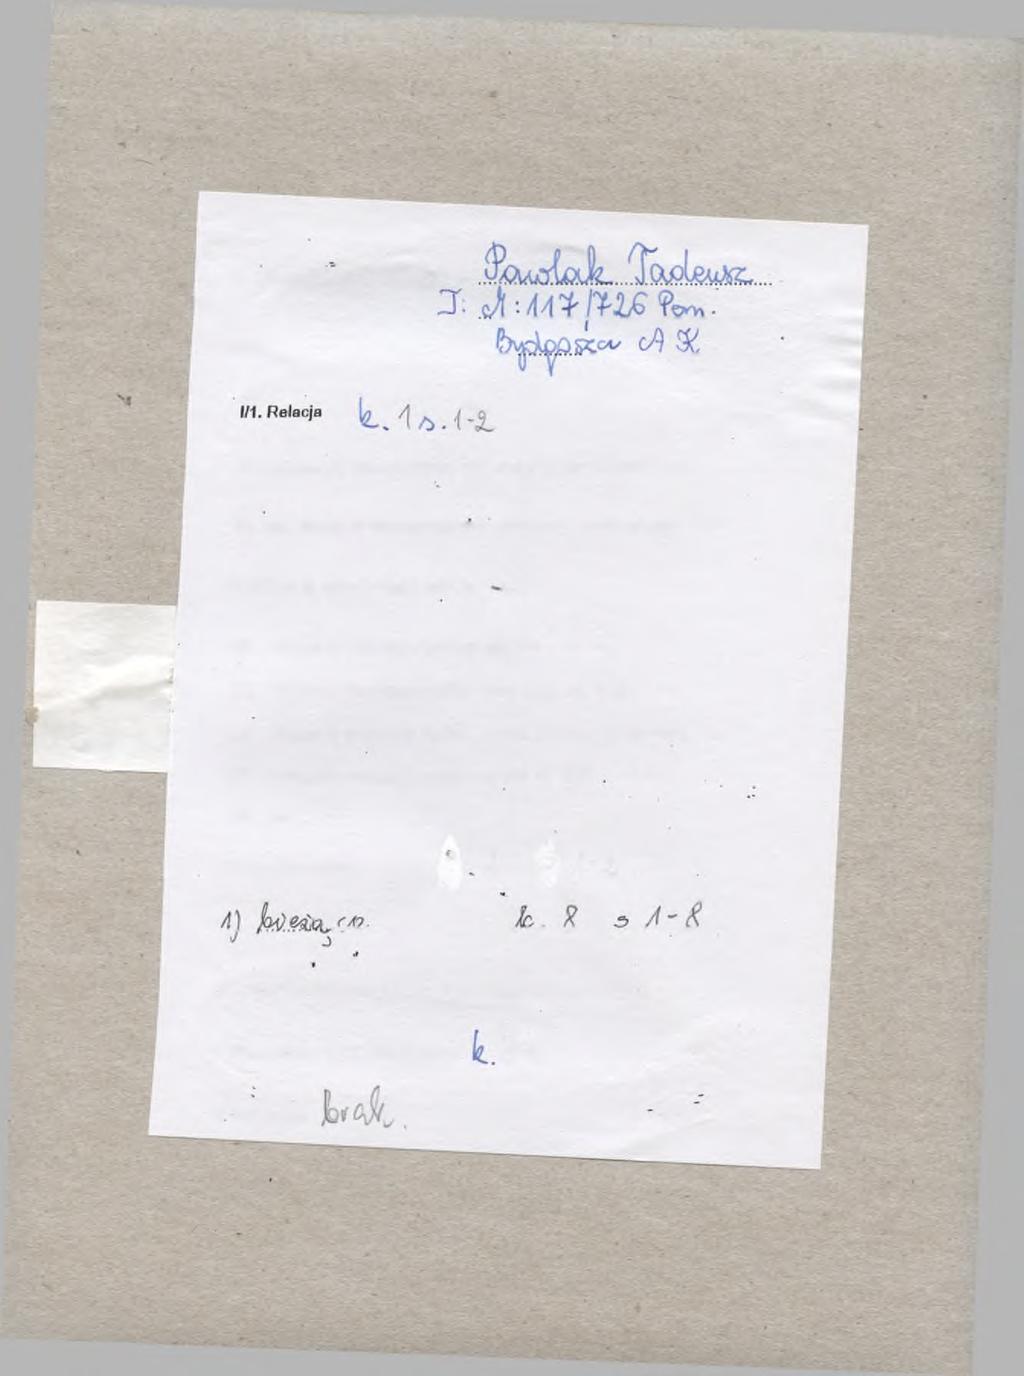 Pawlak Tadeusz
T: M: 117/726 Pom.
Bydgoszcz AK
I/1. Relacja k. 1 s. 1-2
1) bieżąca k. 8 s 1-8
k.
brak.